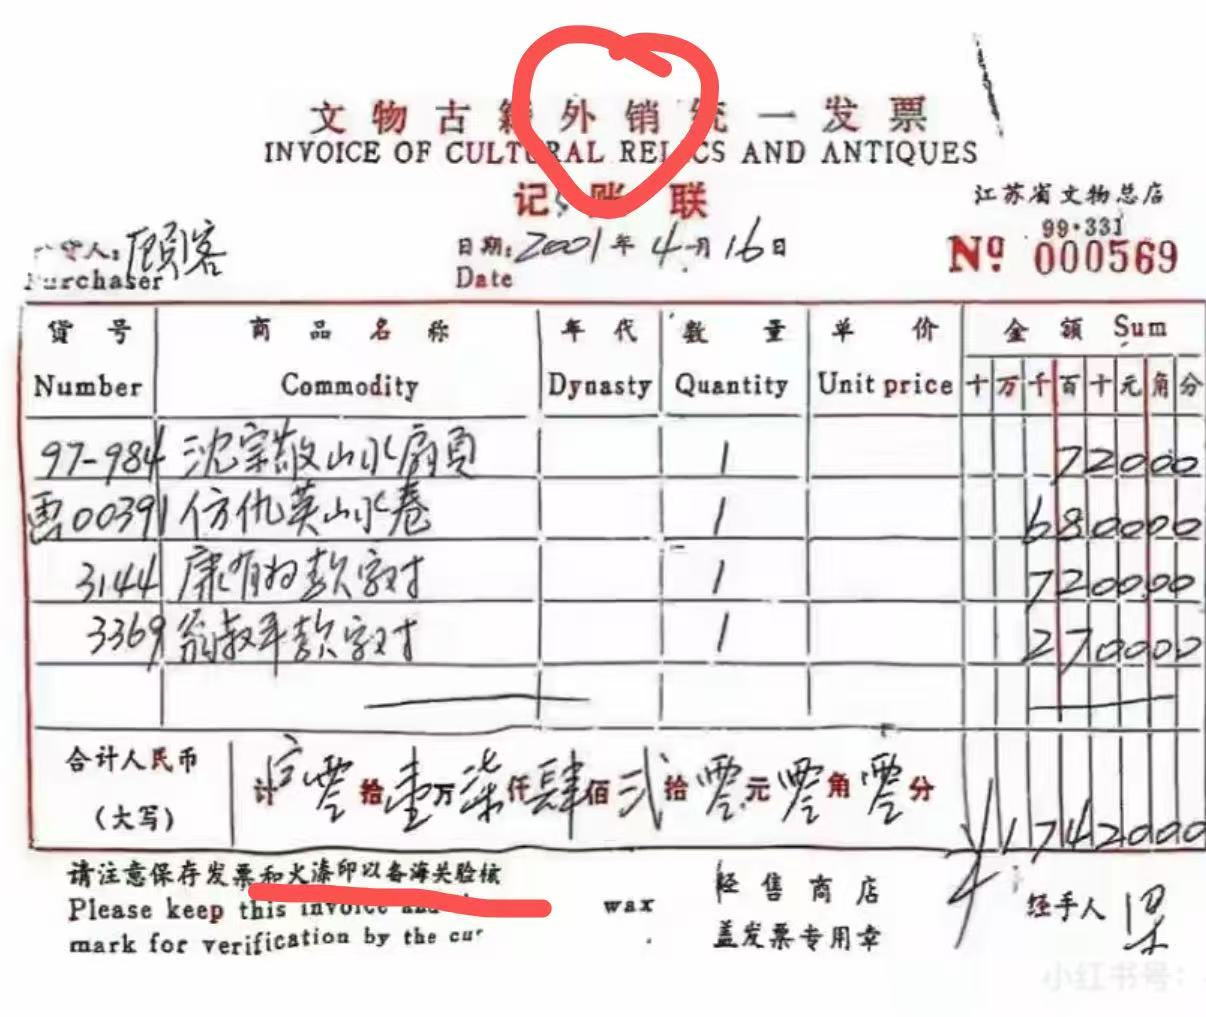 文物古籍外销统一发票
INVOICE OF CULTURAL RELICS AND ANTIQUES
记账联
江苏省文物总店
99·331
人: 顾客
Purchaser
日期: 2001年4月16日
Date
No 000569
货号 商品名称 年代 数量 单价 金额 Sum
Number Commodity Dynasty Quantity Unit price 十万千百十元角分
97-984 沈宗敬山水扇页 1 72000
画00391 仿仇英山水卷 1 680000
3144 康有为款字对 1 720000
3369 翁叔平款字对 1 270000
合计人民币
(大写)
计 零拾壹万柒仟肆佰贰拾零元零角零分 ¥1742000
请注意保存发票和火漆印以备海关验核
Please keep this invoice and wax
mark for verification by the
经售商店
盖发票专用章
经手人 梁
小红书号: